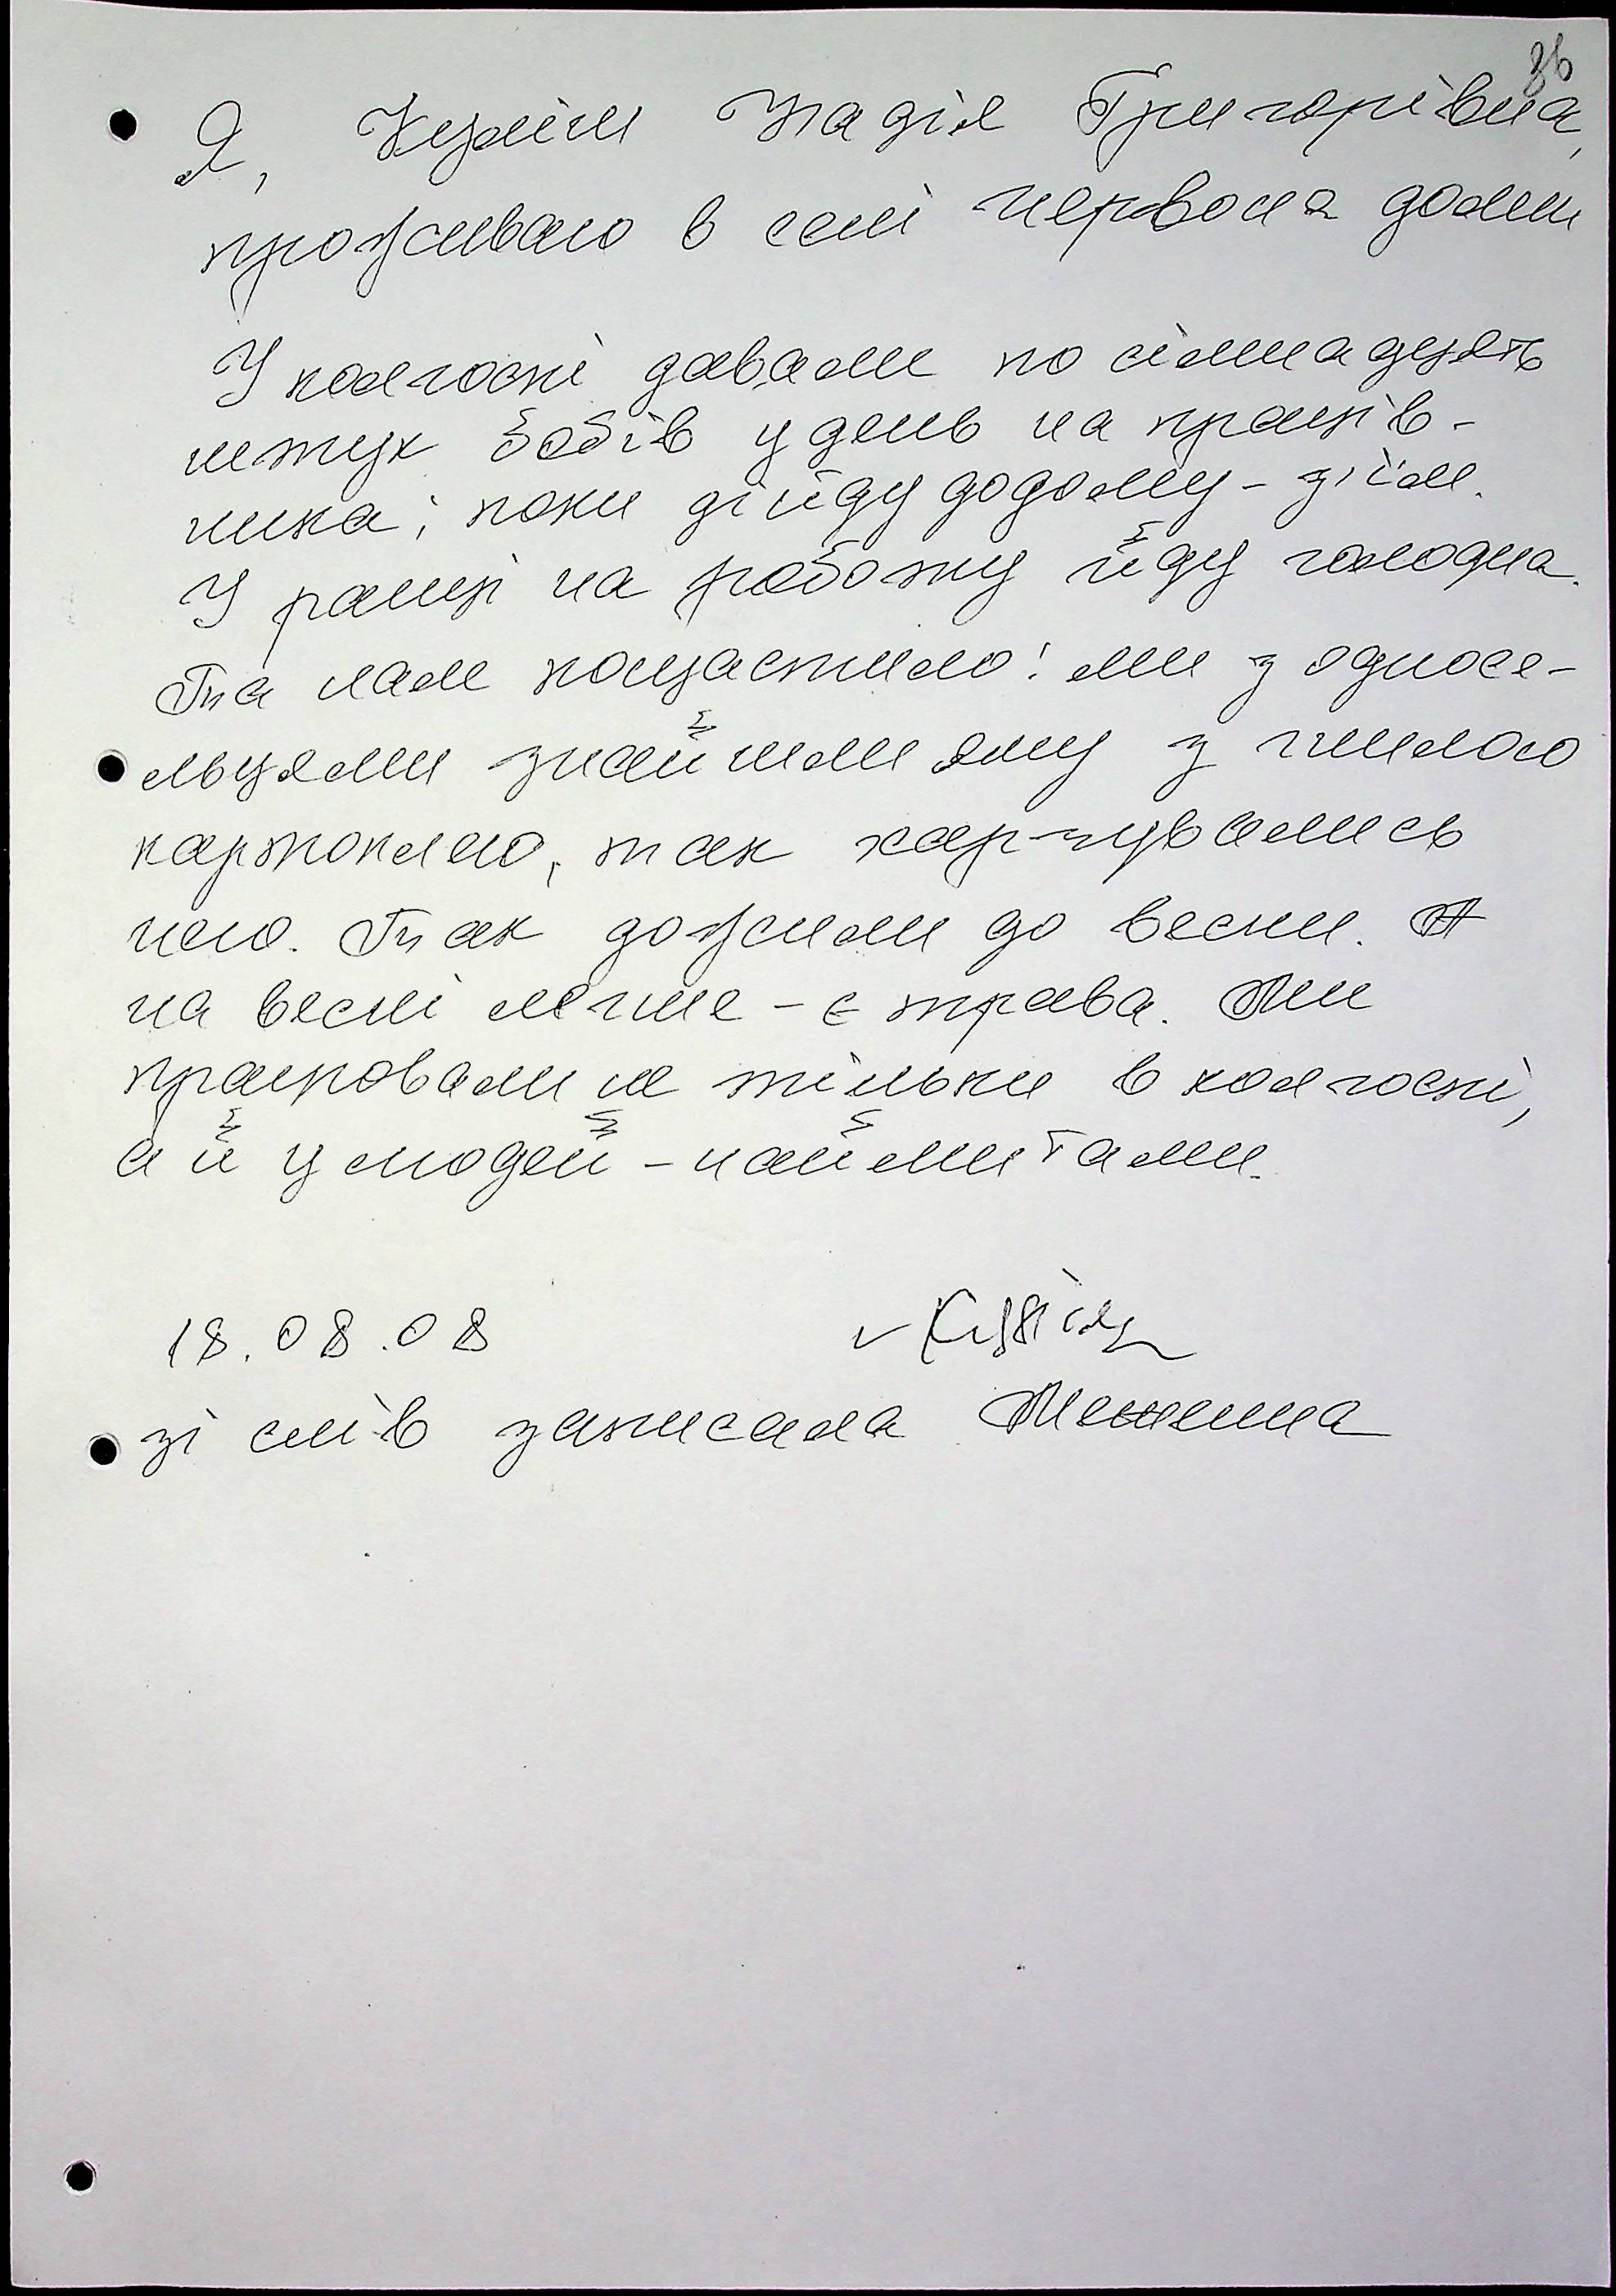 36
Я, Надія Григорівна,
проживаю в селі червона долин
У колгоспі давали по сімнадцять
штук бобів у день на праців-
ника; поки дійду додому - з'їм.
У ранці на роботу йду голодна.
Та нам пощастило: ми з односе-
льцями знайшли яму з гнилою
картоплею, так харчувались
нею. Так дожили до весни. А
на весні легше - є трава. Ми
працювали не тільки в колгоспі,
а й у людей - наймитами.
18.08.08
зі слів записала